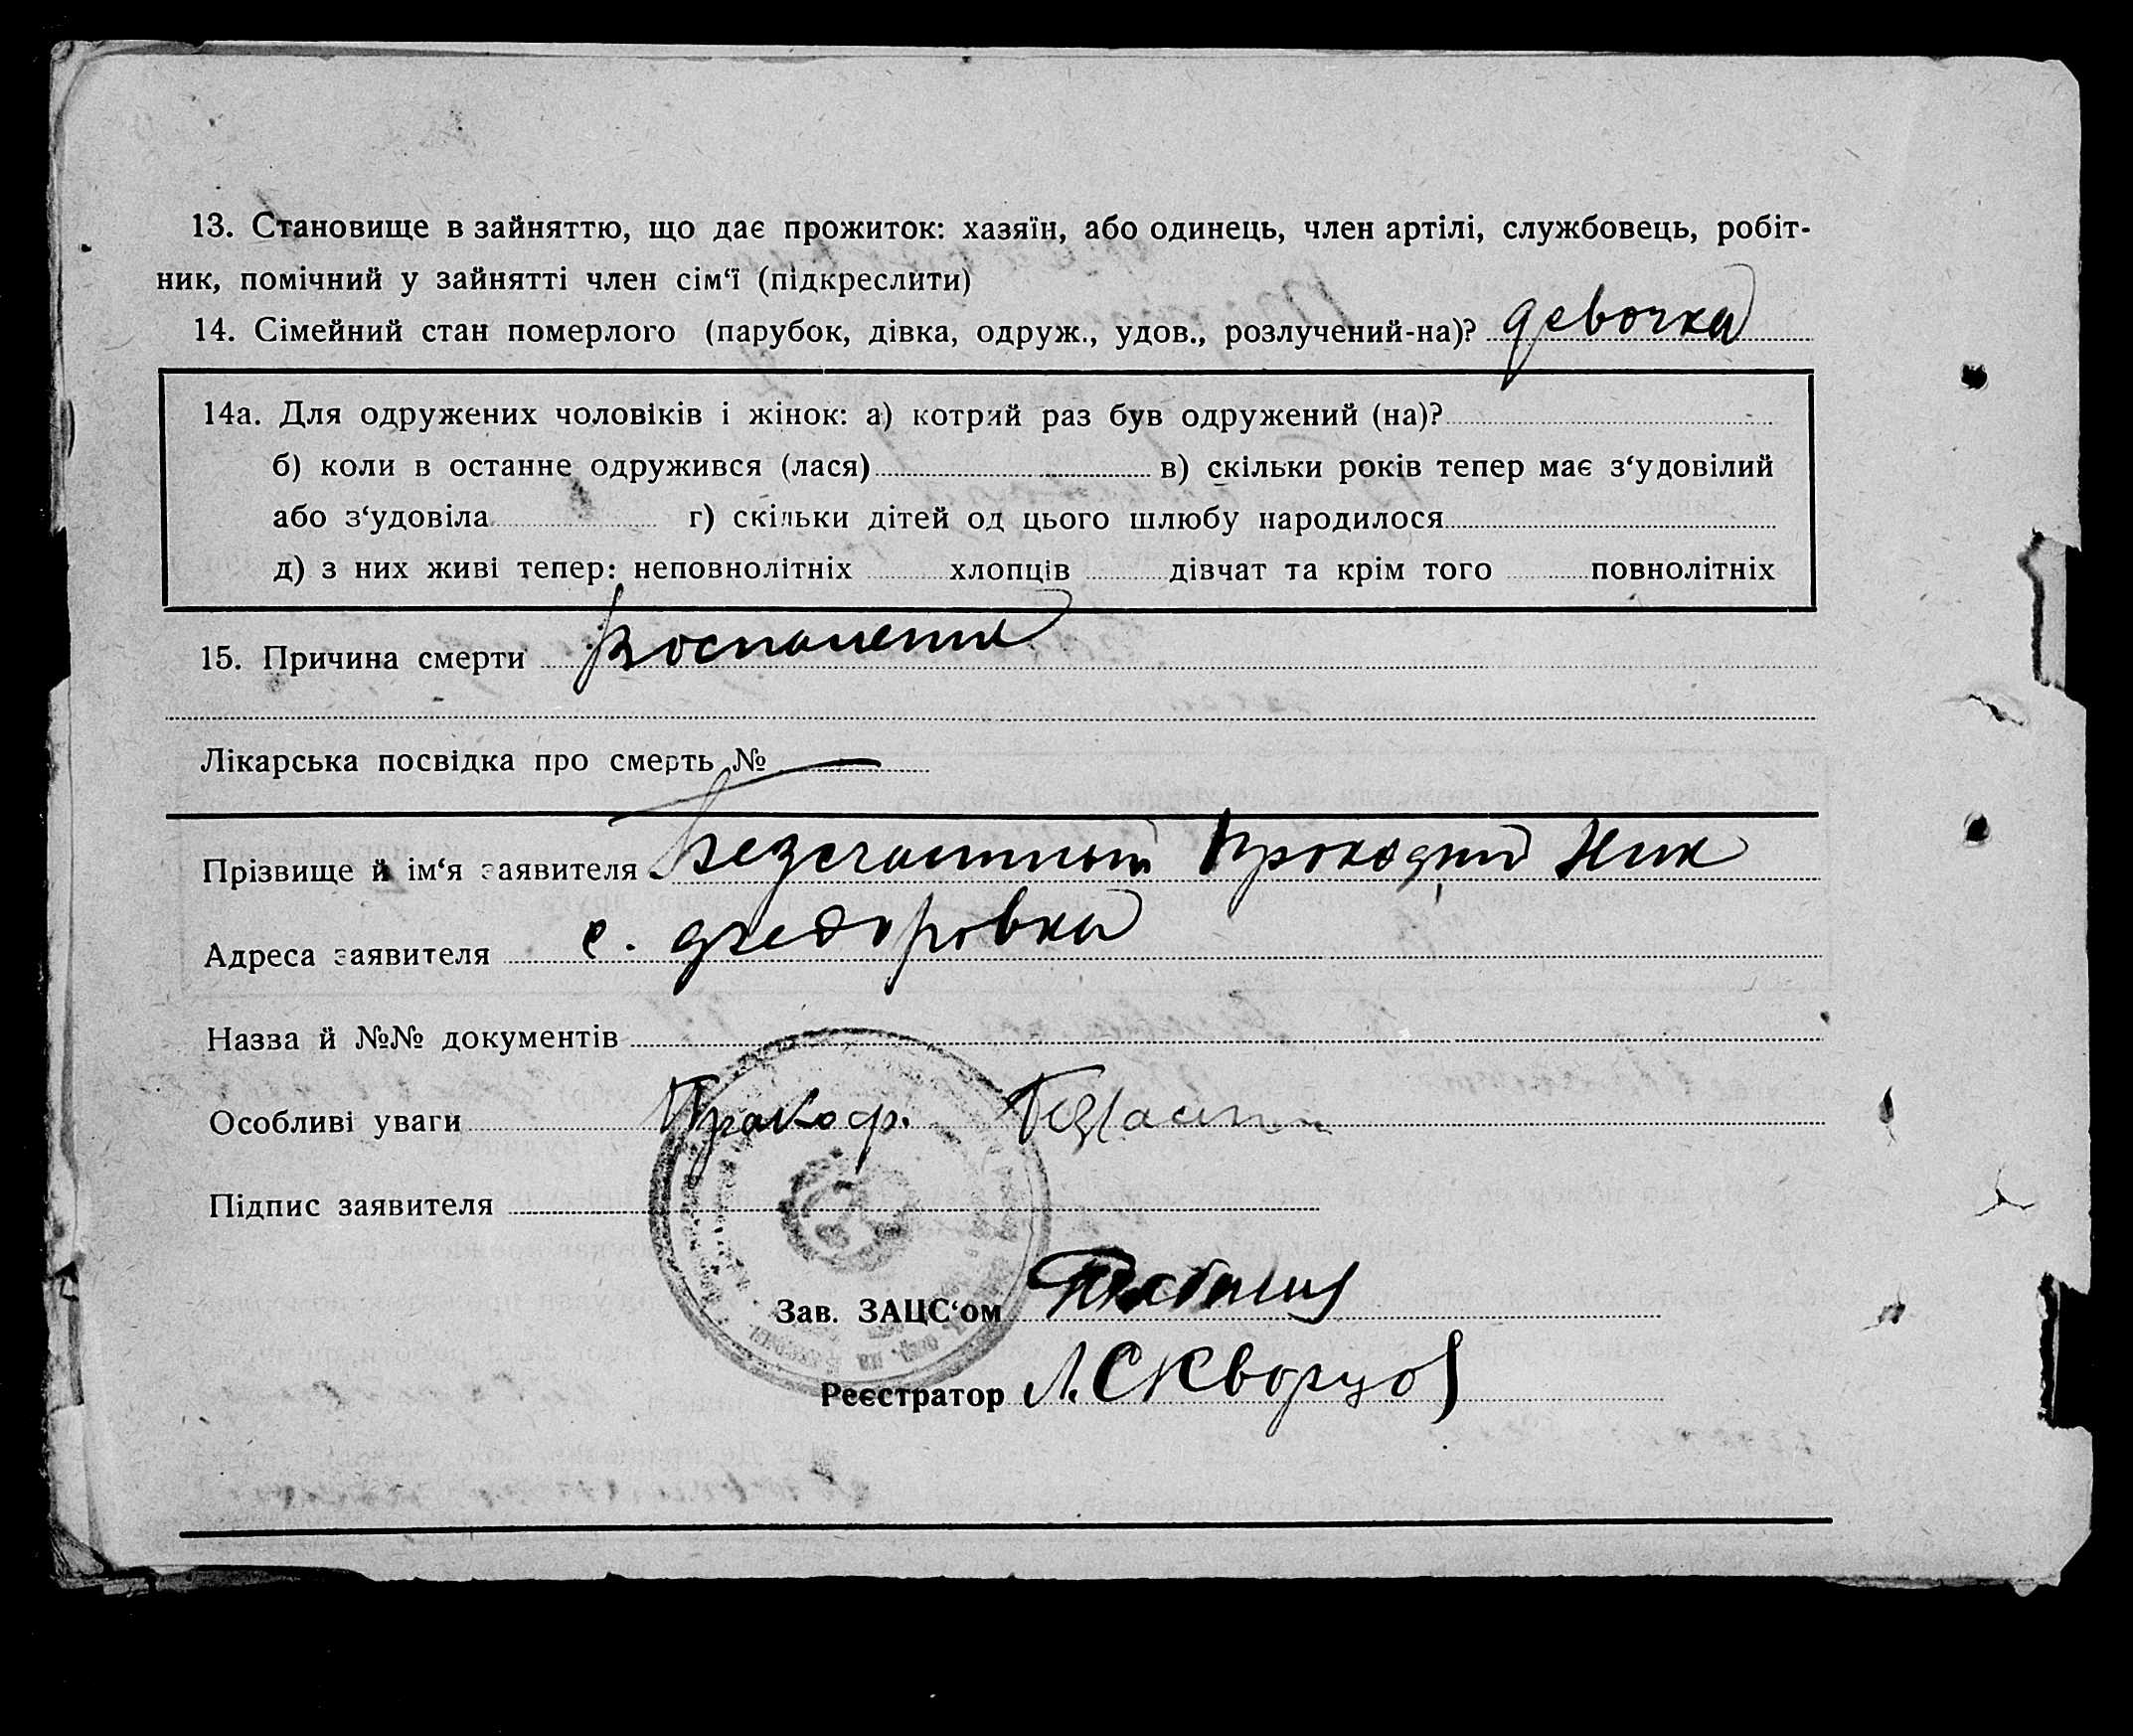 13. Становище в зайняттю, що дає прожиток: хазяїн, або одинець, член артілі, службовець, робіт-
ник, помічний у зайнятті член сім‘ї (підкреслити)
14. Сімейний стан померлого (парубок, дівка, одруж., удов., розлучений-на)? девочка
14а. Для одружених чоловіків і жінок: а) котрий раз був одружений (на)?
б) коли в останне одружився (лася) в) скільки років тепер має з‘удовілий
або з‘удовіла г) скільки дітей од цього шлюбу народилося
д) з них живі тепер: неповнолітніх хлопців дівчат та крім того повнолітніх
15. Причина смерти Воспаление
Лікарська посвідка про смерть №
Прізвище й ім‘я заявителя Безсчастный Прокофий Ник
Адреса заявителя с. Федоровка
Назва й №№ документів
Особливі уваги Прокоф.
Підпис заявителя
Зав. ЗАЦС‘ом
Реєстратор Л. Скворцов